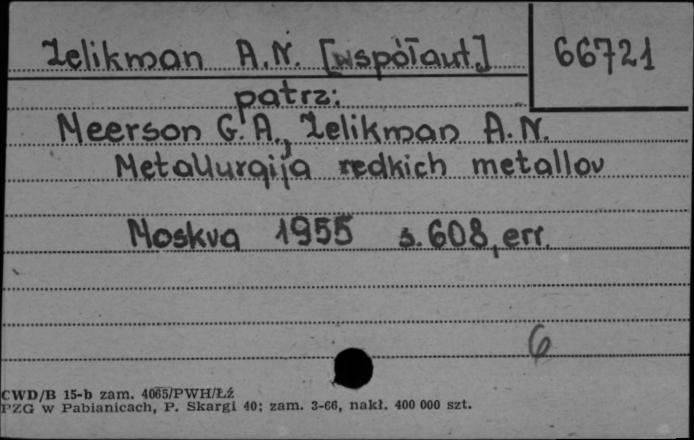 Zelikman A.N. [współaut.] 66721
patrz:
Meerson G. A., Zelikman A. N.
Metallurgija redkich metallov
Moskva 1955 s. 608, err.
6
CWD/B 15-b zam. 4065/PWH/Łź
PZG w Pabianicach, P. Skargi 40; zam. 3-66, nakł. 400 000 szt.